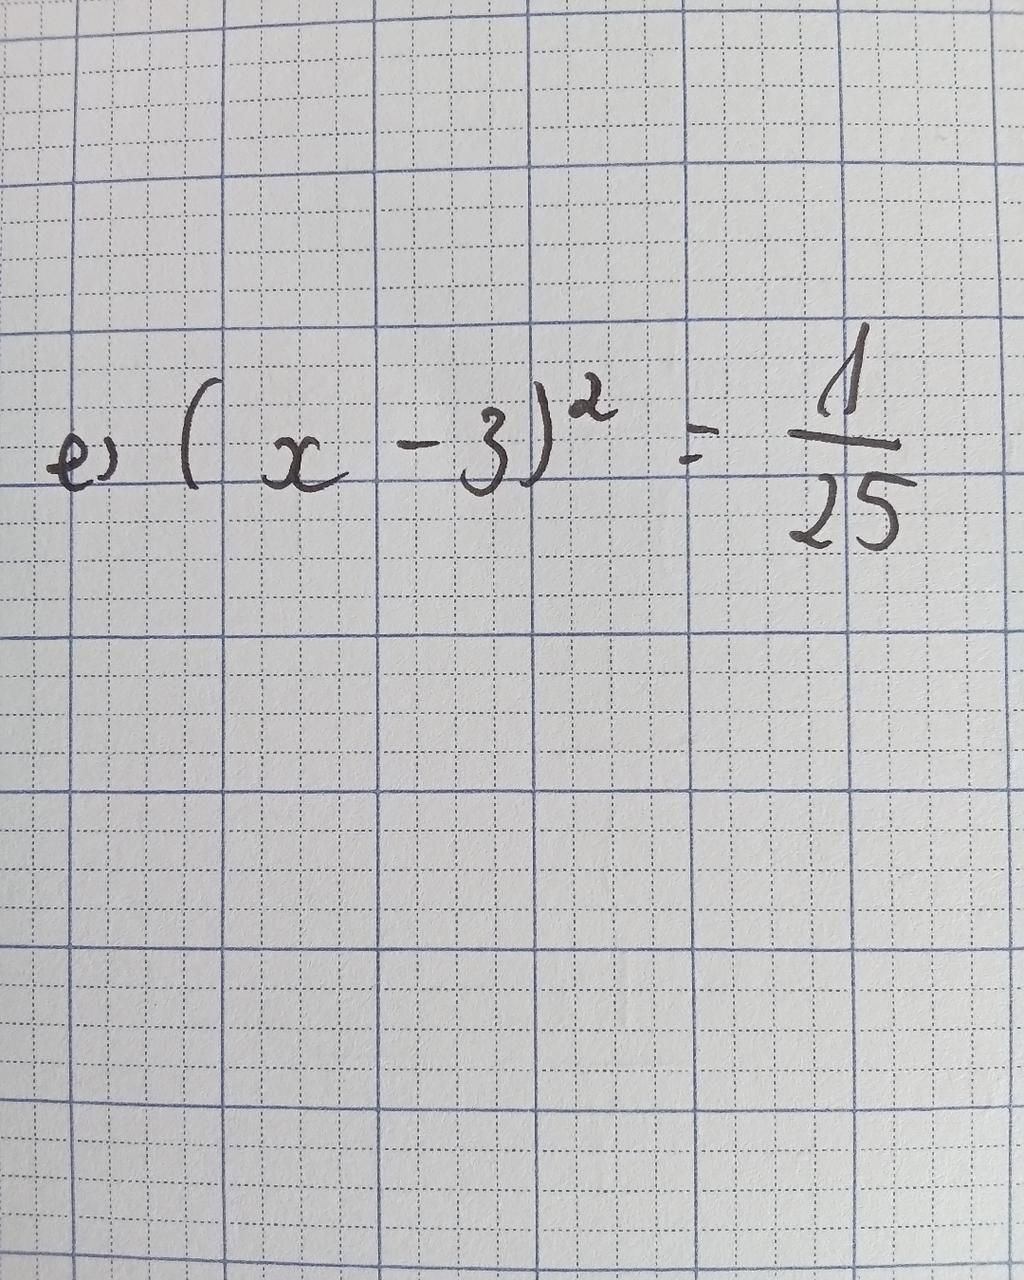 e) (x - 3)² = 1/25